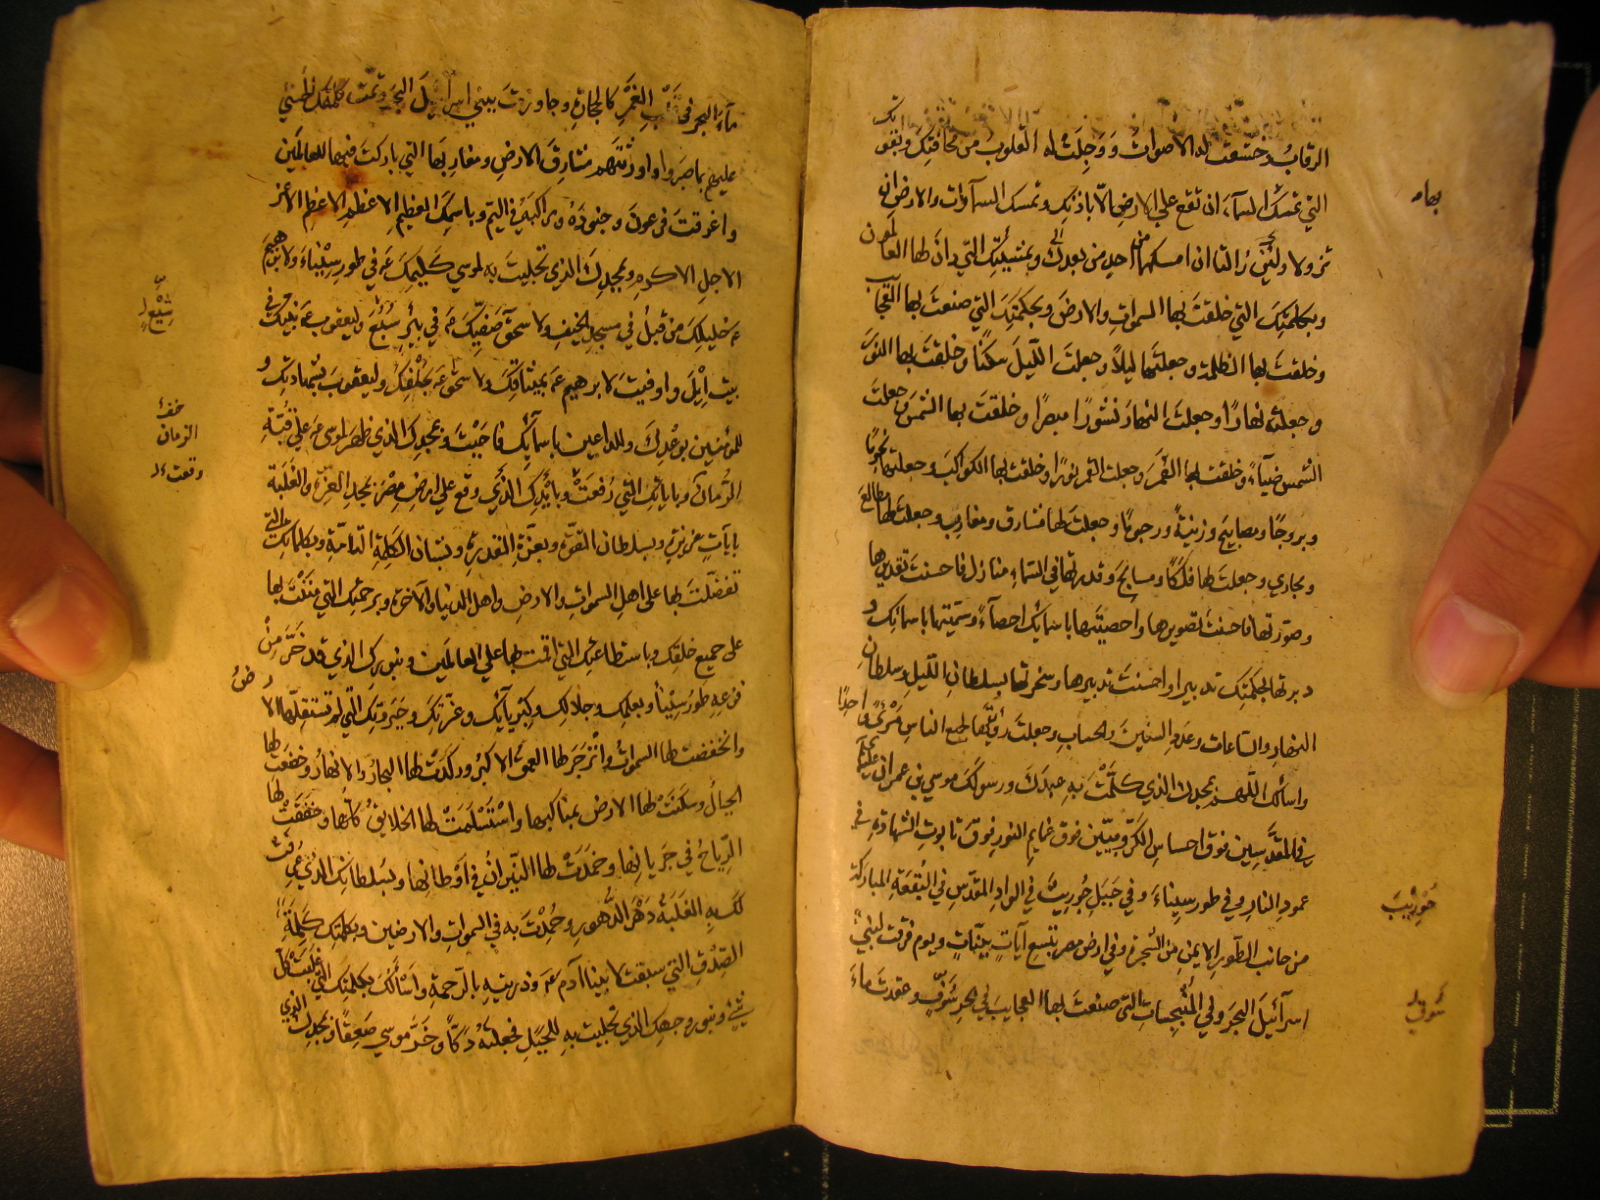 الرقاب وخشعت له الاصوات ووجلت له القلوب من مخافتك وبقوتك
التي تمسك السماء ان تقع علي الارض الا باذنك وتمسك السموات والارض ان
تزولا ولئن زالتا ان امسكهما من احد من بعدك وبمشيتك التي دان لها العالمون
وبكلمتك التي خلقت بها السموات والارض وبحكمتك التي صنعت بها العجايب
وخلقت بها الظلمة وجعلتها ليلا وجعلت الليل سكنا وخلقت بها النور
وجعلته نهارا وجعلت النهار نشورا مبصرا وخلقت بها الشمس وجعلت
الشمس ضياء وخلقت بها القمر وجعلت القمر نورا وخلقت بها الكواكب وجعلتها نجوما
وبروجا ومصابيح وزينة ورجوما وجعلت لها مشارق ومغارب وجعلت لها مطالع
ومجاري وجعلت لها فلكا ومسابح وقدرتها في السماء منازل فاحسنت تقديرها
وصورتها فاحسنت تصويرها واحصيتها باسمائك احصاء وسميتها باسمائك و
دبرتها بحكمتك تدبيرا واحسنت تدبيرها وسخرتها بسلطان الليل وسلطان
النهار والساعات وعدد السنين والحساب وجعلت رؤيتها لجميع الناس مرئ واحدا
واسألك اللهم بمجدك الذي كلمت به عبدك ورسولك موسي بن عمران
في المقدسين فوق احساس الكروبيين فوق غمايم النور فوق تابوت الشهادة في
عمود النار وفي طور سيناء وفي جبل حوريث في الواد المقدس في البقعة المباركة
من جانب الطور الايمن من الشجرة وفي ارض مصر بتسع آيات بينات ويوم فرقت لبني
اسرائيل البحر وفي المنبجسات التي صنعت بها العجايب في بحر سوف وعقدت ماء
بهاء
حوريب
سوف
ماء البحر في قلب الغمر كالحجارة وجاوزت ببني اسرائيل البحر وتمت كلمتك الحسني
عليهم بما صبروا واورثتهم مشارق الارض ومغاربها التي باركت فيها للعالمين
واغرقت فرعون وجنوده ومراكبه في اليم وباسمك العظيم الاعظم الاعظم الاعز
الاجل الاكرم وبمجدك الذي تجليت به لموسي كليمك عم في طور سيناء ولابرهيم
عم خليلك من قبل في مسجد الخيف ولاسحق صفيك عم في بئر شيع وليعقوب عم نبيك في
بيت ايل واوفيت لابرهيم عم بميثاقك ولاسحق عم بحلفك وليعقوب بشهادتك و
للمؤمنين بوعدك وللداعين باسمائك فاجبت وبمجدك الذي ظهر لموسي عم علي قبة
الرمان وباياتك التي رفعت وبايدك الذي وقع علي ارض مصر بمجد العزة والغلبة
بايات عزيزة وبسلطان القوة وبعزة القدرة وبشان الكلمة التامة وبكلماتك التي
تفضلت بها علي اهل السموات والارض واهل الدنيا والآخرة وبرحمتك التي مننت بها
علي جميع خلقك وباستطاعتك التي اقمت بها علي العالمين وبنورك الذي قد خر من
فزعه طور سيناء وبعلمك وجلالك وكبريائك وعزتك وجبروتك التي لم تستقلها الارض
وانخفضت لها السموات وانزجر لها العمق الاكبر وركدت لها البحار والانهار وخضعت لها
الجبال وسكنت لها الارض بمناكبها واستسلمت لها الخلايق كلها وخفقت لها
الرياح في جريانها وخمدت لها النيران في اوطانها وبسلطانك الذي عرفت
لك به الغلبة دهر الدهور وحمدت به في السموات والارضين وبكلمتك كلمة
الصدق التي سبقت لابينا آدم عم وذريته بالرحمة واسألك بكلمتك التي غلبت كل
شئ وبنور وجهك الذي تجليت به للجبل فجعلته دكا وخر موسي صعقا وبمجدك الذي
شيع
الزمان